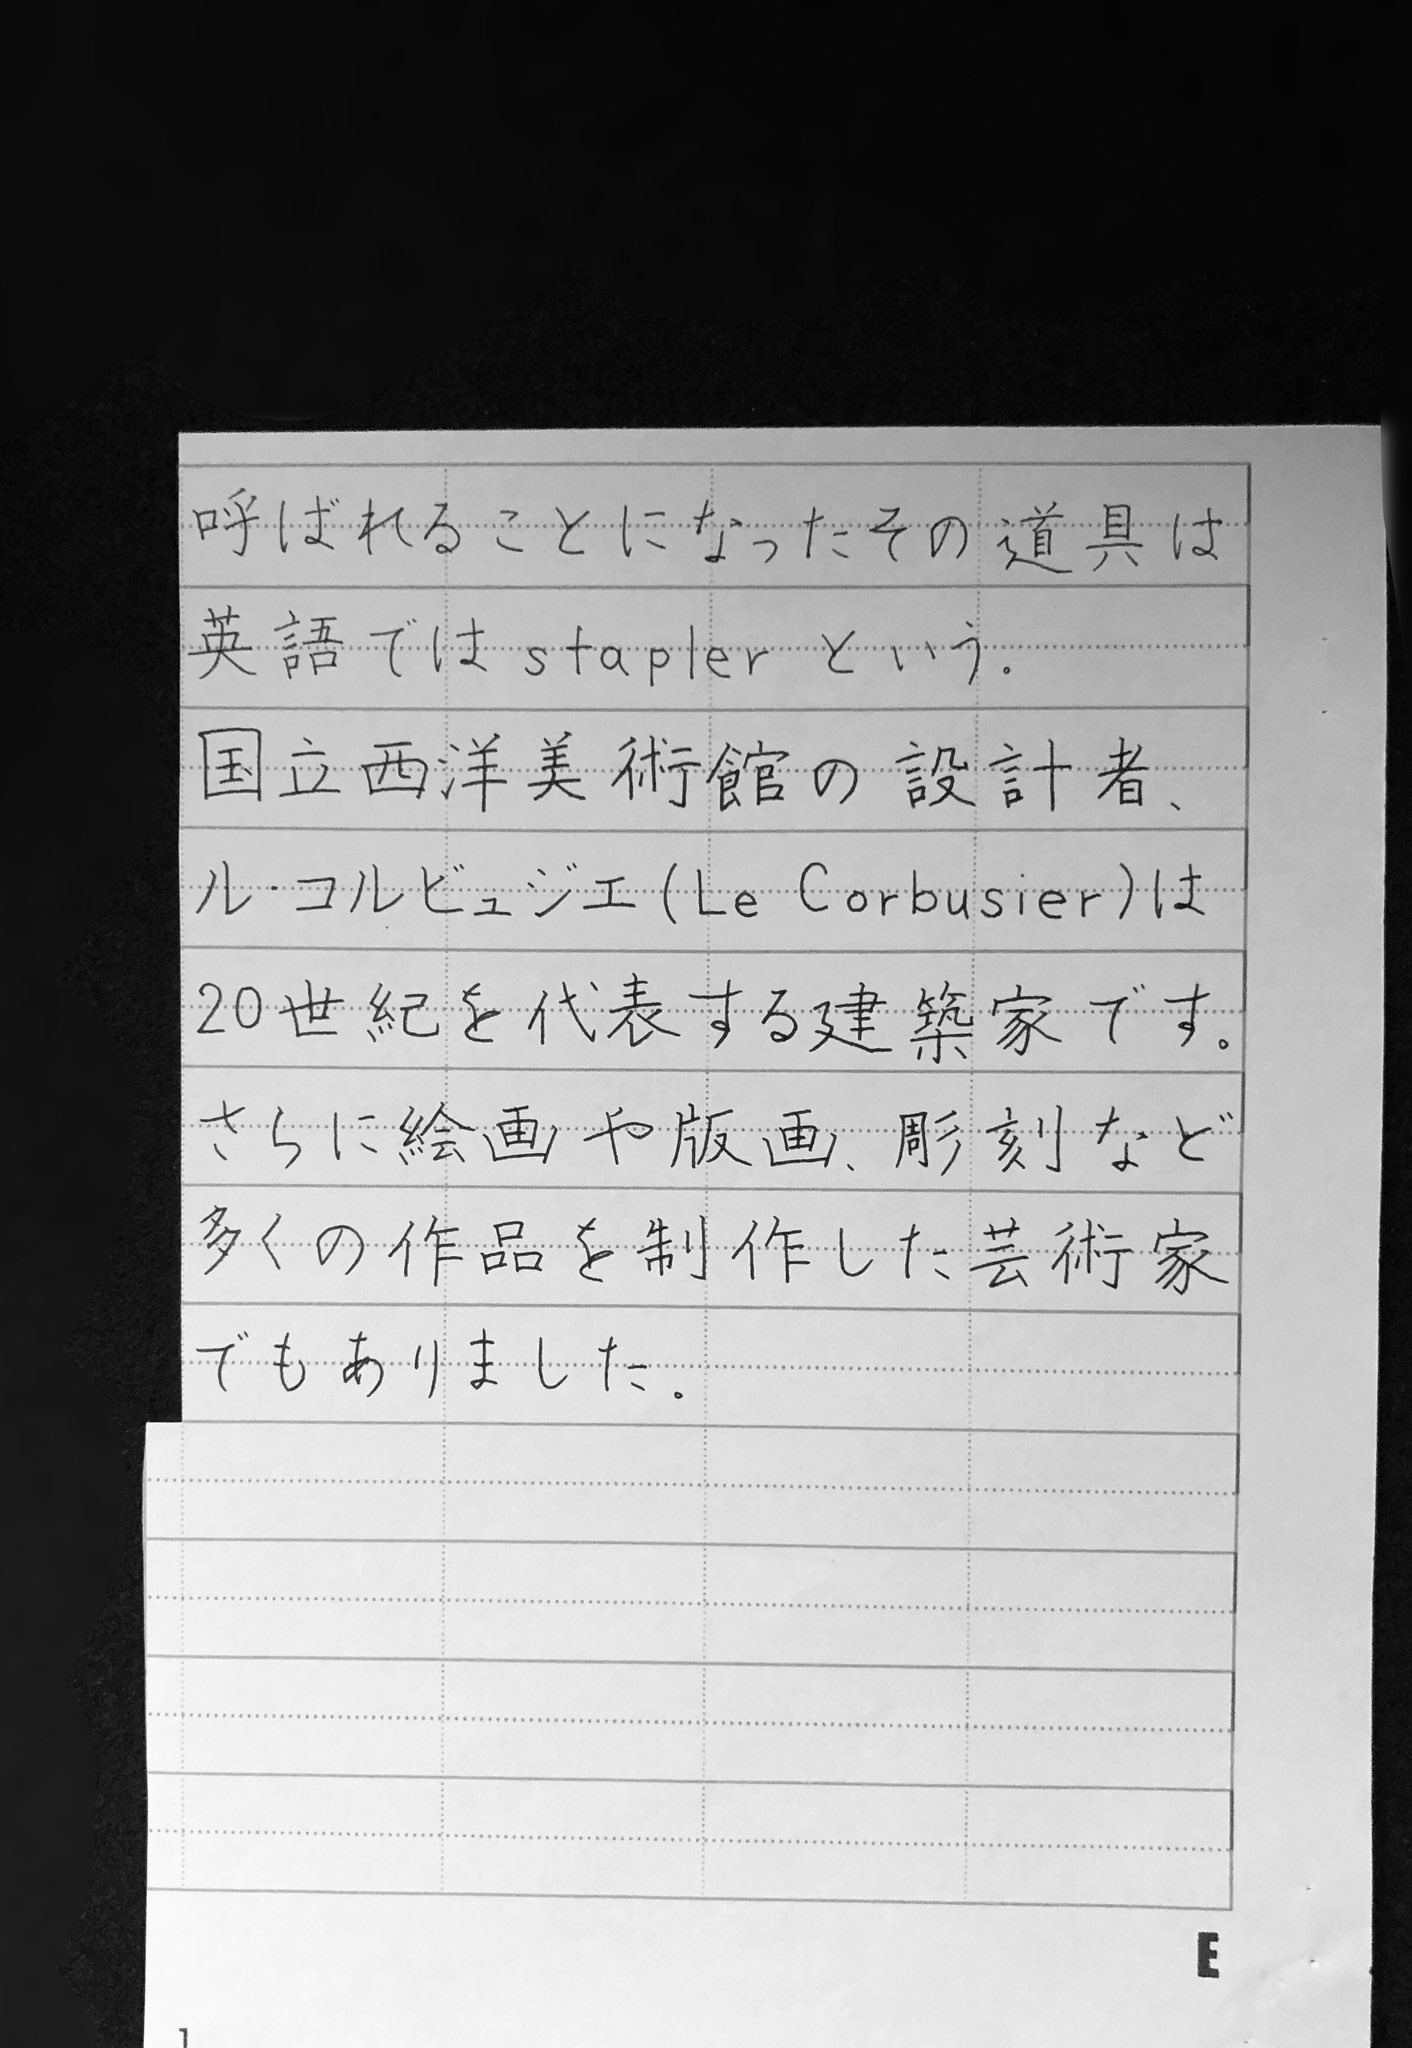 呼ばれることになったその道具は
英語では stapler という.
国立西洋美術館の設計者、
ル・コルビュジエ(Le Corbusier)は
20世紀を代表する建築家です。
さらに絵画や版画、彫刻など
多くの作品を制作した芸術家
でもありました。
E
1